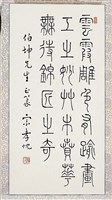 雲霞雕色有踰畫
工之妙艸木賁華
無待錦匠之奇
伯坤先生 宗孝忱